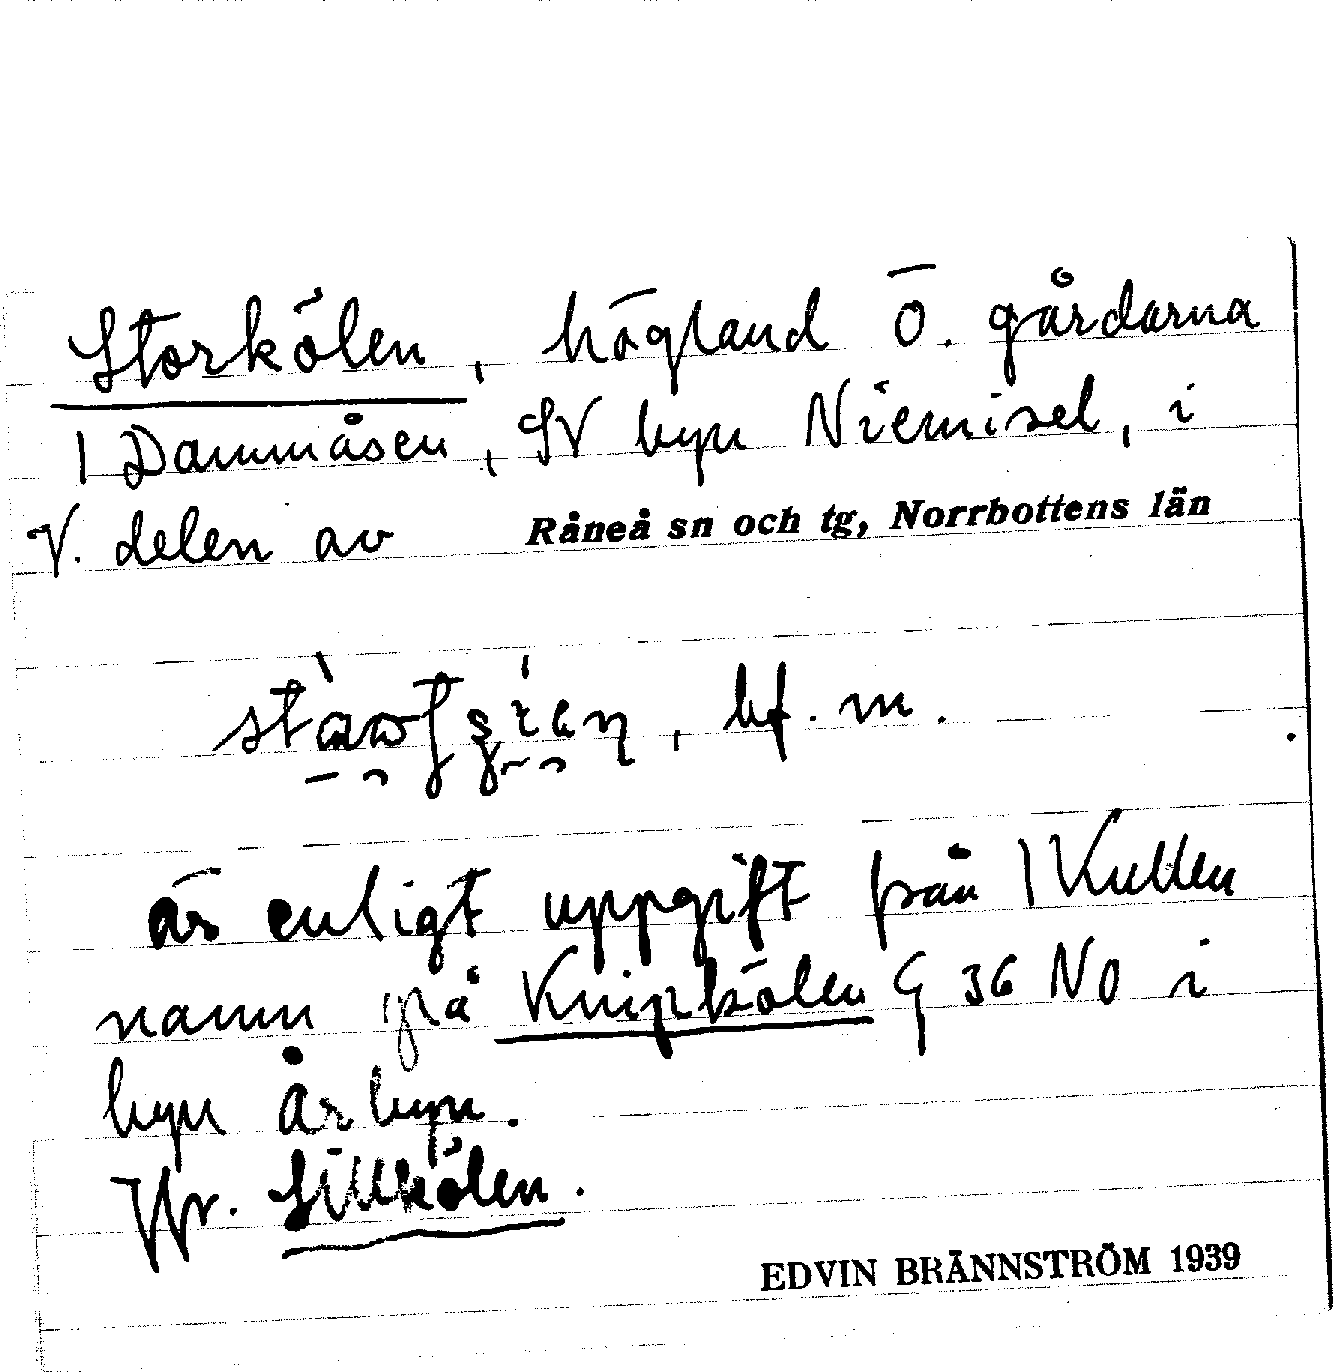 Storkölen, högland Ö. gårdarna
1 Dammåsen, SV byn Niemisel, i
V. delen av Råneå sn och tg, Norrbottens län
bf. m.
är enligt uppgift från 1 Kullen
namn på Knipkölen G 36 NO i
byn Årbyn.
Jfr. Lillkölen.
EDVIN BRÄNNSTRÖM 1939